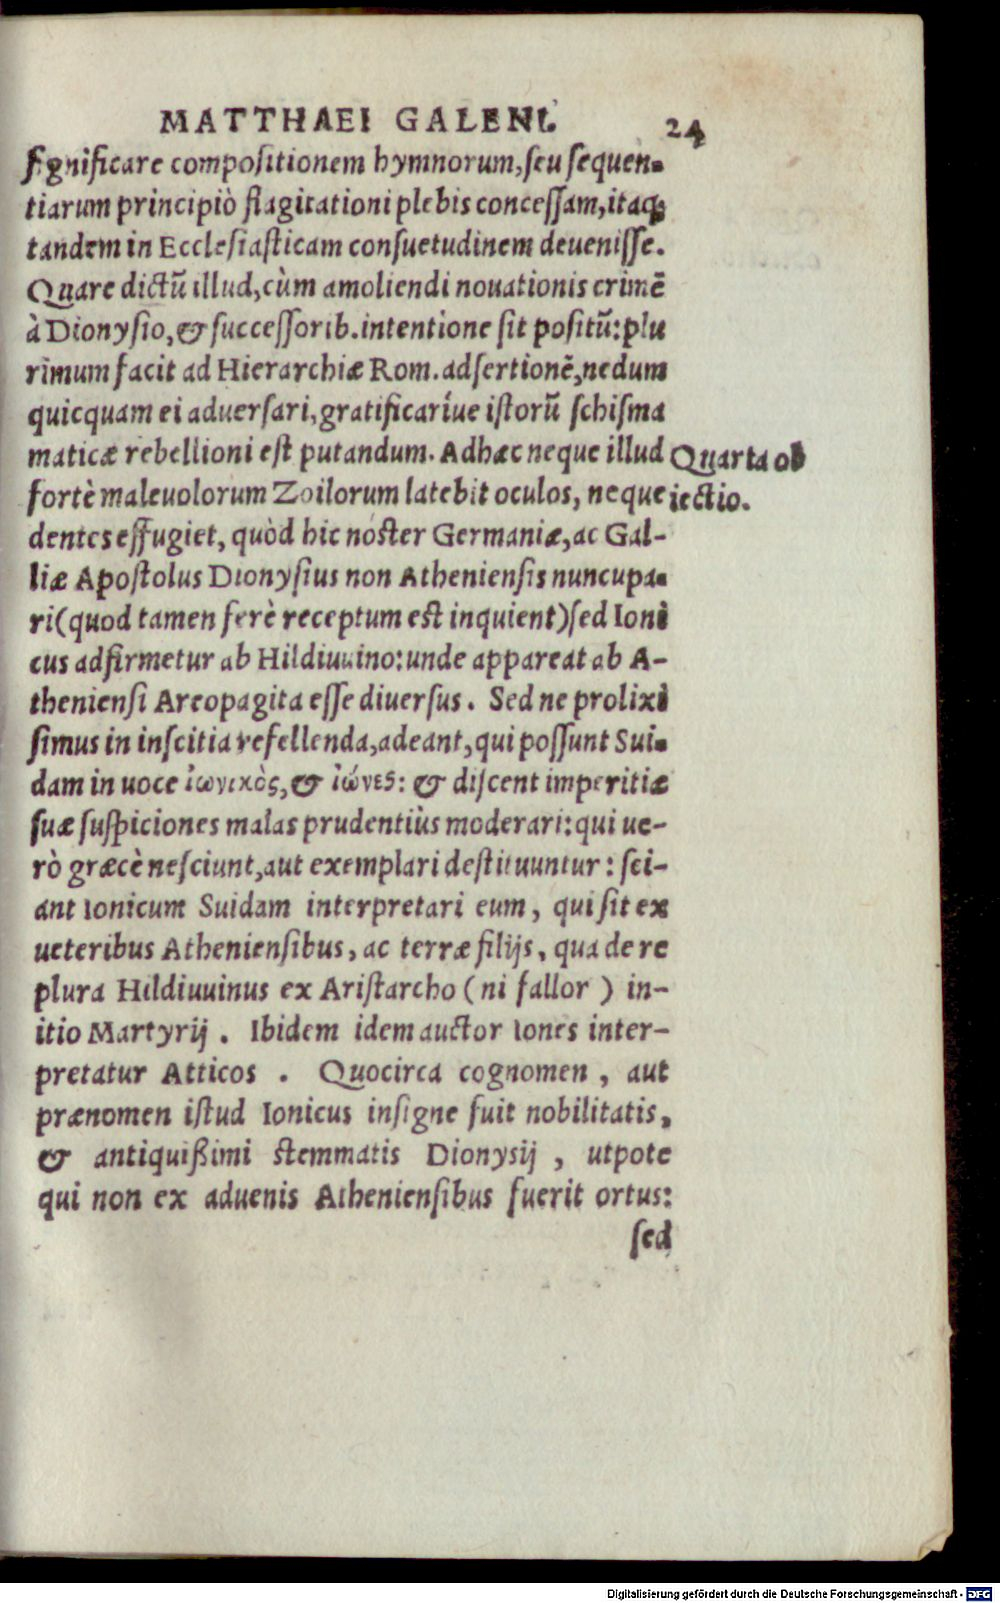 MATTHAEI GALENI. 24
ſignificare compoſitionem hymnorum, ſeu ſequen-
tiarum principiò flagitationi plebis conceſſam, itaq́;
tandem in Eccleſiaſticam conſuetudinem deueniſſe.
Quare dictũ illud, cùm amoliendi nouationis crimẽ
à Dionyſio, & ſucceſſorib. intentione ſit poſitũ: plu
rimum facit ad Hierarchiæ Rom. adſertionẽ, nedum
quicquam ei aduerſari, gratificaríue iſtorũ ſchiſma
maticæ rebellioni eſt putandum. Adhæc neque illud
fortè maleuolorum Zoilorum latebit oculos, neque
dentes effugiet, quòd hic noſter Germaniæ, ac Gal-
liæ Apoſtolus Dionyſius non Athenienſis nuncupa-
ri (quod tamen ferè receptum eſt inquient) ſed Ioni
cus adfirmetur ab Hilduuino: unde appareat ab A-
thenienſi Areopagita eſſe diuerſus. Sed ne prolixi
ſimus in inſcitia refellenda, adeant, qui poſſunt Sui-
dam in uoce ἰωνικὸς, & ἰώνες: & diſcent imperitiæ
ſuæ ſuſpiciones malas prudentiùs moderari: qui ue-
rò græcè neſciunt, aut exemplari deſtituuntur: ſci-
ant Ionicum Suidam interpretari eum, qui ſit ex
ueteribus Athenienſibus, ac terræ filijs, qua de re
plura Hildiuuinus ex Ariſtarcho (ni fallor) in-
itio Martyrij. Ibidem idem auctor Iones inter-
pretatur Atticos. Quocirca cognomen, aut
prænomen iſtud Ionicus inſigne fuit nobilitatis,
& antiquißimi ſtemmatis Dionysij, utpote
qui non ex aduenis Athenienſibus fuerit ortus:
ſed
Quarta ob
iectio.
Digitalisierung gefördert durch die Deutsche Forschungsgemeinschaft - DFG